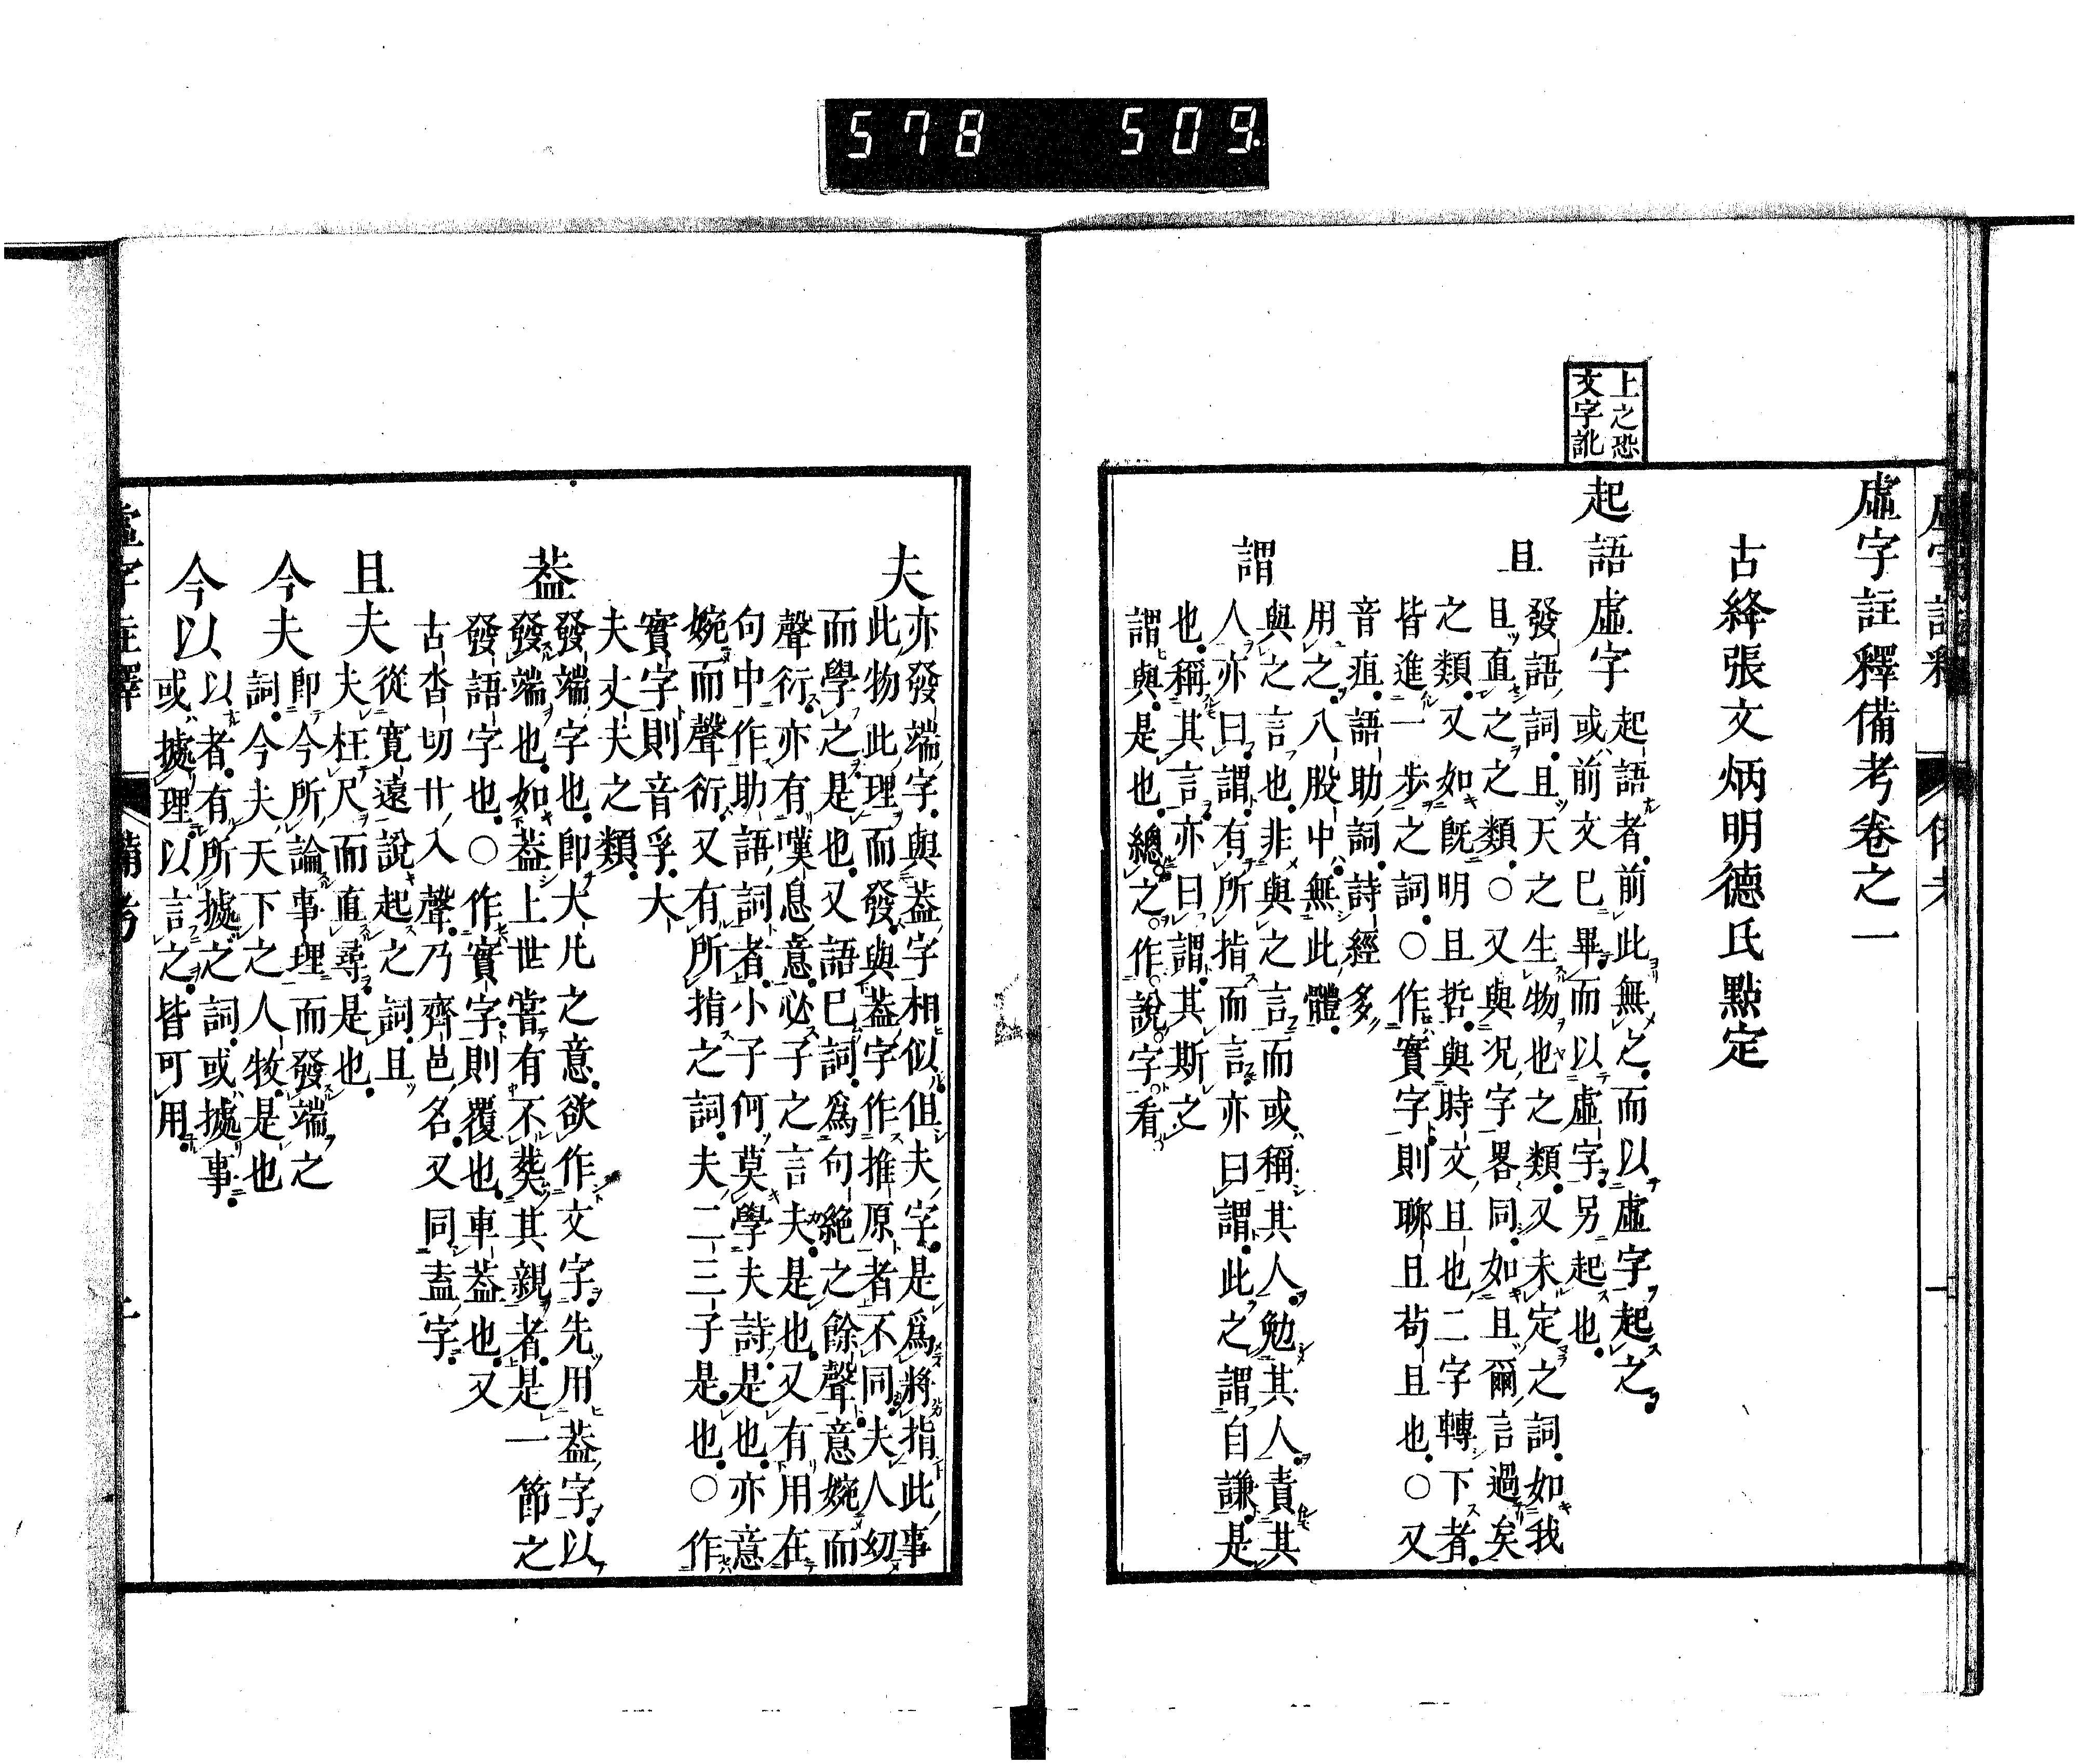 578 509
上之恐
文字訛
虛字註釋備考卷之一
古絳張文炳明德氏點定
起語虛字
起語者前此無之而以虛字起之
或前文已畢而以虛字另起也
且
發語詞且天之生物也之類又未定之詞如我
且直之之類○又與況字畧同如且爾言過矣
之類又如旣明且哲與時文且也二字轉下者
皆進一步之詞○作實字則聊且苟且也○又
音疽語助詞詩經多
用之八股中無此體
謂
與之言也非與之言而或稱其人勉其人責其
人亦曰謂有所指而言亦曰謂此之謂自謙是
也稱其言亦曰謂其斯之
謂與是也總之作說字看
夫
亦發端字與葢字相似但夫字是爲將指此事
此物此理而發與葢字作推原者不同夫人幼
而學之是也又語已詞爲句絶之餘聲意婉而
聲衍亦有嘆息意必子之言夫是也又有用在
句中作助語詞者小子何莫學夫詩是也亦意
婉而聲衍又有所指之詞夫二三子是也○作
實字則音孚大
夫丈夫之類
葢
發端字也卽大凡之意欲作文字先用葢字以
發端也如葢上世嘗有不葬其親者是一節之
發語字也○作實字則覆也車葢也又
古杳切廿入聲乃齊邑名又同盍字
且夫
從寛遠說起之詞且
夫枉尺而直尋是也
今夫
卽今所論事理而發端之
詞今夫天下之人牧是也
今以
以者有所據之詞或據事
或據理以言之皆可用
虛字註釋 備考